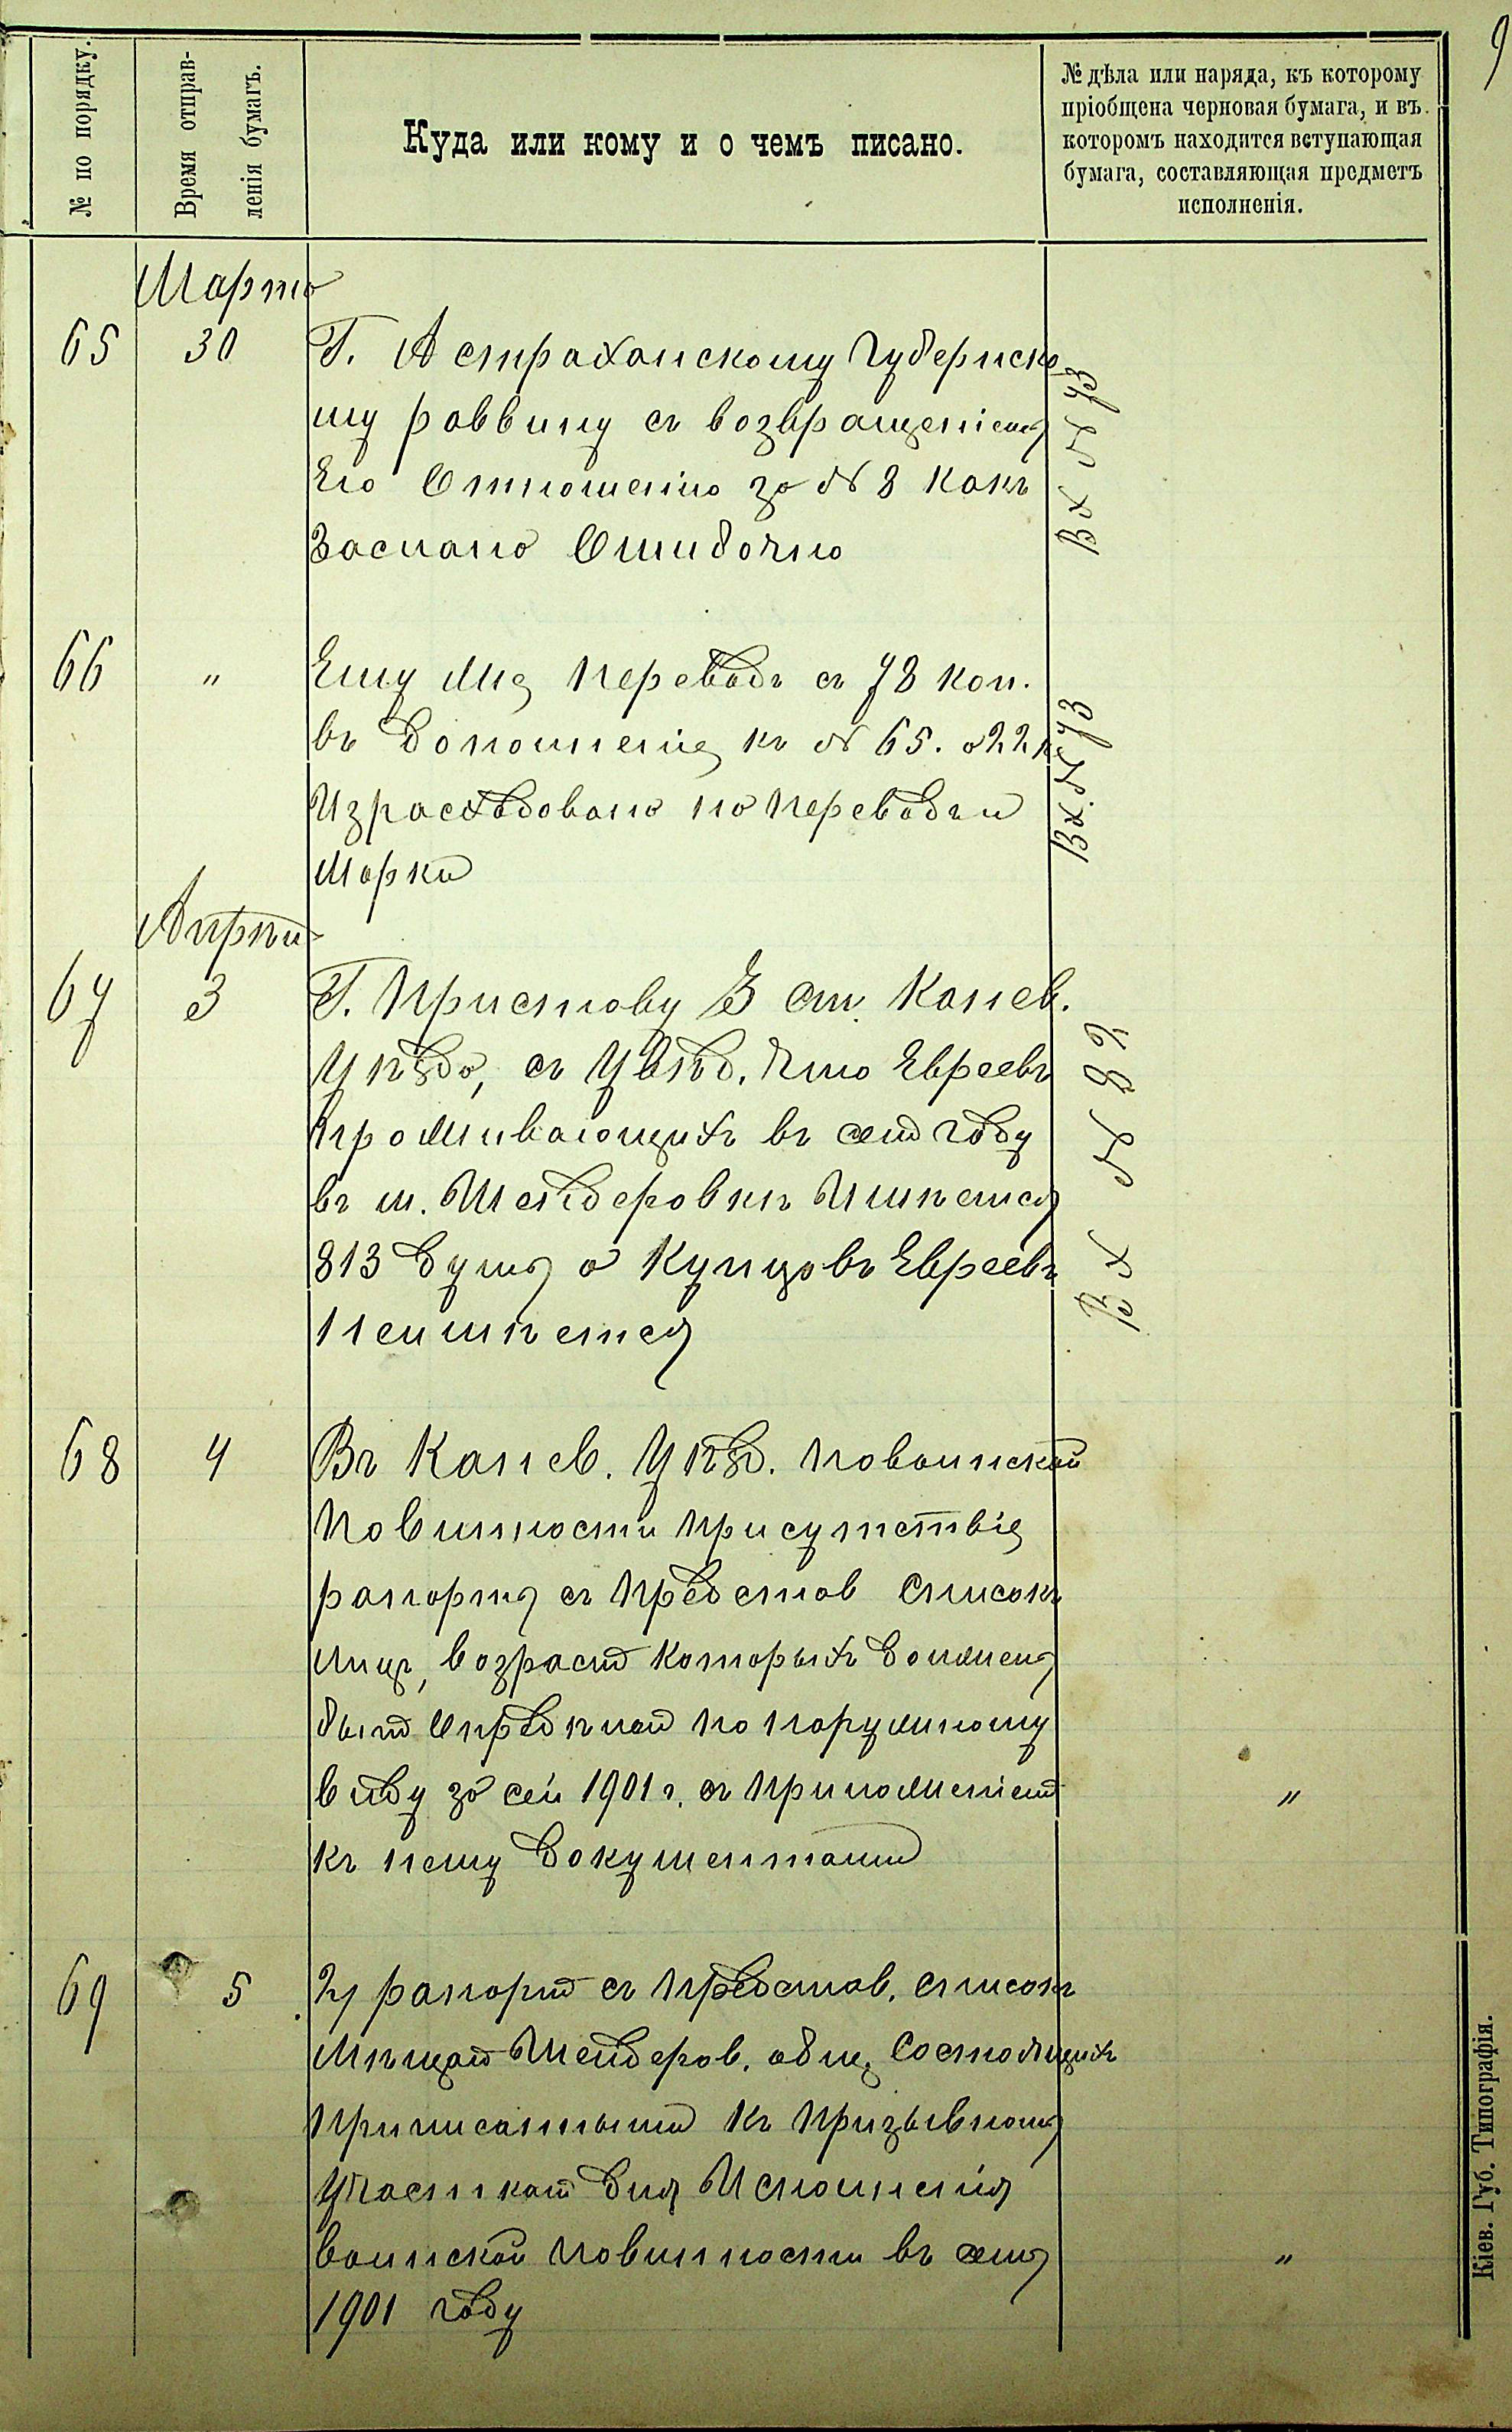 9
№ по порядку.
Время отправ-
ленія бумагъ.
Куда или кому и о чемъ писано.
№ дѣла или наряда, къ которому
пріобщена черновая бумага, и въ
которомъ находится вступающая
бумага, составляющая предметъ
исполненія.
Марта
65 30 Г. Астраханскому Губернско
му раввину съ возвращеніемъ
Его Отношенію за № 8 какъ
Заслано Ошибочно
Вх № 73
66 " Ему же переводъ съ 78 коп.
въ дополненіе къ № 65. а 22 к
Израсходовано на переводъ и
Марки
Вх. № 73
Апрѣл
67 3 Г. Приставу 3 ст. Канев.
Уѣзда, съ Увѣд. что Евреевъ
проживающихъ въ семъ году
въ м. Шендеровкѣ Имѣется
813 душъ а Купцовъ Евреевъ
неимѣется
Вх № 82
68 4 Въ Канев. Уѣзд. по воинской
Повинности присутствіе
рапортъ съ представ списокъ
лицъ, возрастъ которыхъ долженъ
быть Опредѣленъ по наружному
виду за сей 1901 г. съ приложеніемъ
къ нему документами
"
69 5 2/ рапортъ съ представ. списокъ
Мѣщанъ Шендеров. общ. Состоящихъ
приписанными къ призывному
участкамъ для Исполненія
воинской повинности въ семъ
1901 году
"
Кіев. Губ. Типографія.